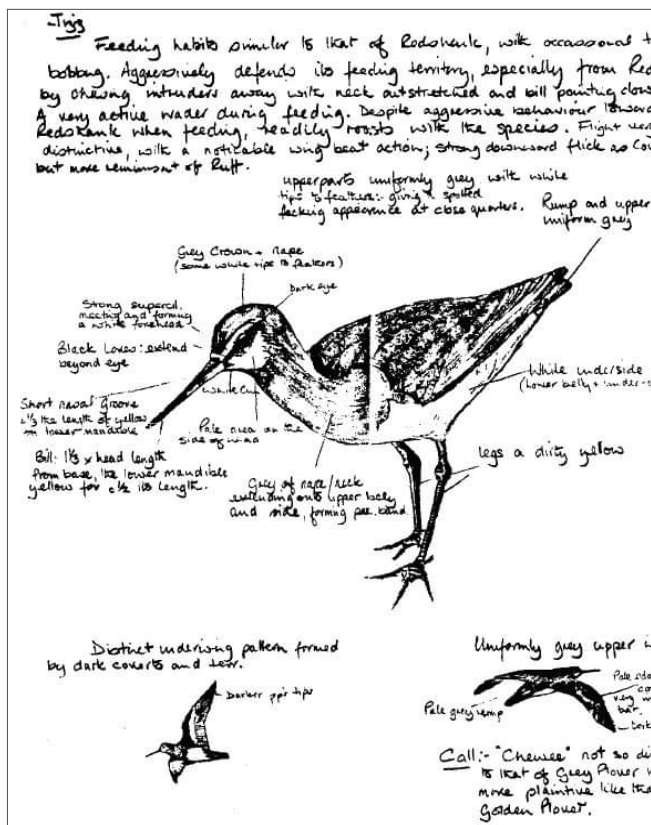 Jizz
Feeding habits similar to that of Redshank, with occassional
bobbing. Aggressively defends its feeding territory, especially from
by chasing intruders away with neck outstretched and bill pointing
A very active wader during feeding. Despite aggressive behaviour
Redshank when feeding, readily roosts with the species. Flight
distinctive, with a noticable wing beat action; strong downward flick as
but more reminisant of Ruff.
upperparts uniformly grey with white
tips to feathers:- giving a spotted
appearance at close quarters.
Rump and upper
uniform grey
Grey Crown + nape
(some white tips to feathers)
Dark eye
Strong superci.
meeting and forming
a white forehead
Black Lores: extend
beyond eye
Short nasal Groove
the length of yellow
on lower mandible
White
Pale area on the
side of
Bill: 1⅓ x head length
from base, the lower mandible
yellow for c½ its length.
White underside
(lower belly + under-
legs a dirty yellow
Grey of nape/neck
extending onto upper belly
and side, forming band
Distinct underwing pattern formed
by dark coverts and
Darker pp's tips
Uniformly grey upper
Pale
Pale grey rump
very
bar.
Call:- "Chewee" not so
to that of Grey Plover
more plaintive like
Golden Plover.